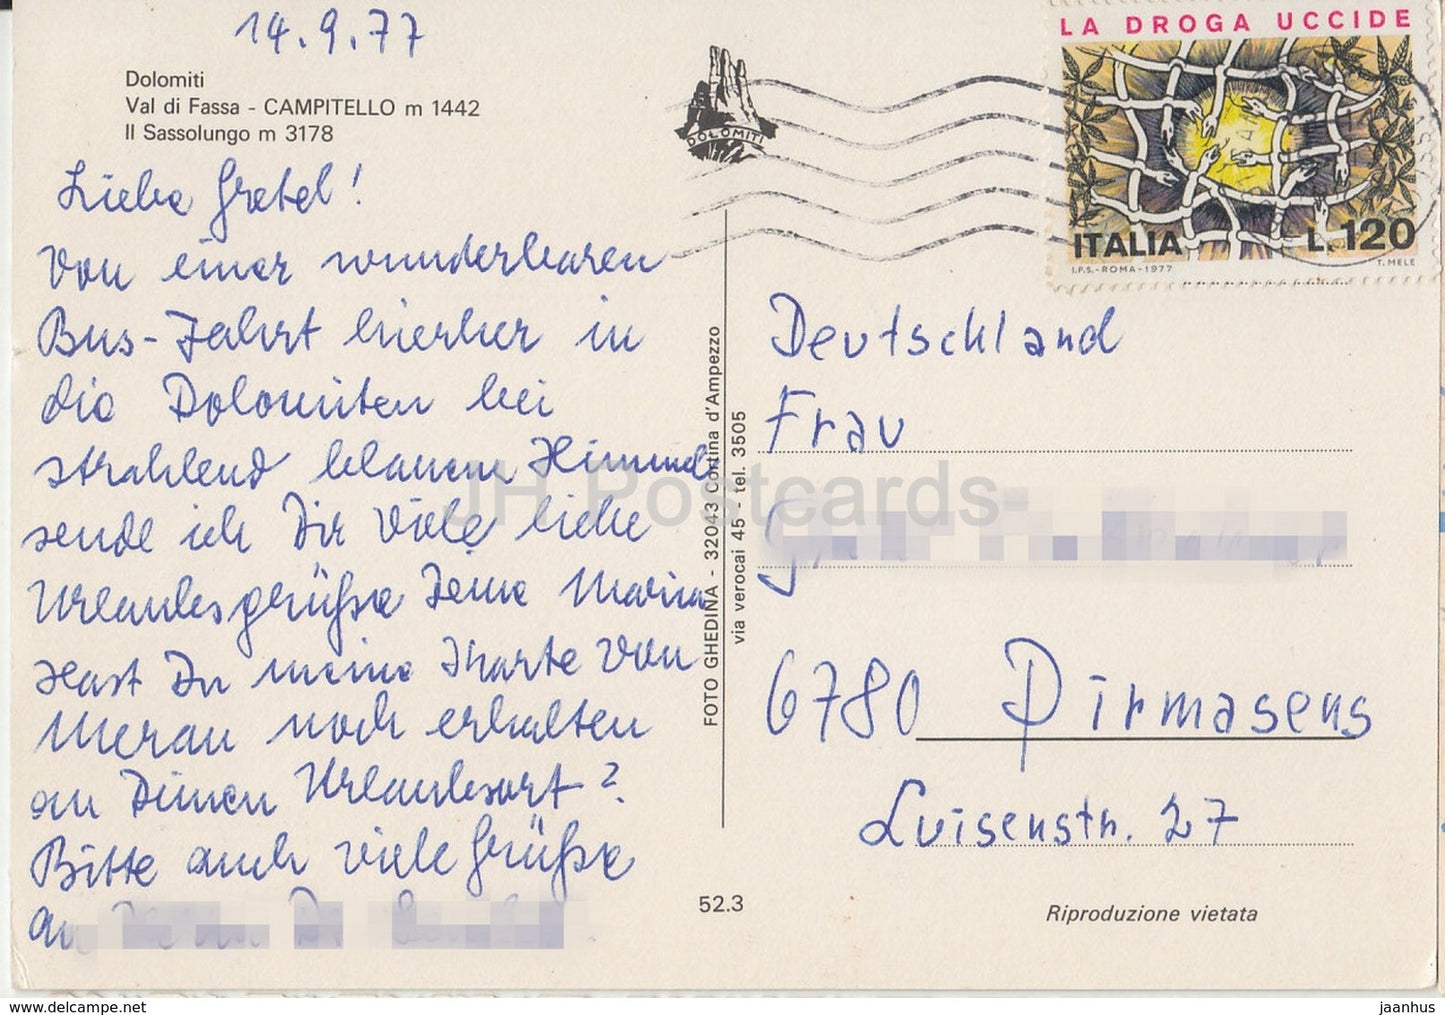 14.9.77
Dolomiti
Val di Fassa - CAMPITELLO m 1442
Il Sassolungo m 3178
Liebe Gretel!
Von einer wunderbaren
Bus-Fahrt hierher in
die Dolomiten bei
strahlend blauem Himmel
sende ich Dir viele liebe
Urlaubsgrüße Deine Maria
Hast Du meine Karte von
Meran noch erhalten
an Deinen Urlaubsort?
Bitte auch viele Grüße
an
DOLOMITI
LA DROGA UCCIDE
ITALIA L.120
I.P.S.-ROMA-1977 T. MELE
FOTO GHEDINA - 32043 Cortina d'Ampezzo
via verocai 45 - tel. 3505
Deutschland
Frau
6780 Pirmasens
Luisenstr. 27
52.3
Riproduzione vietata
JH Postcards
www.delcampe.net
jaanhus